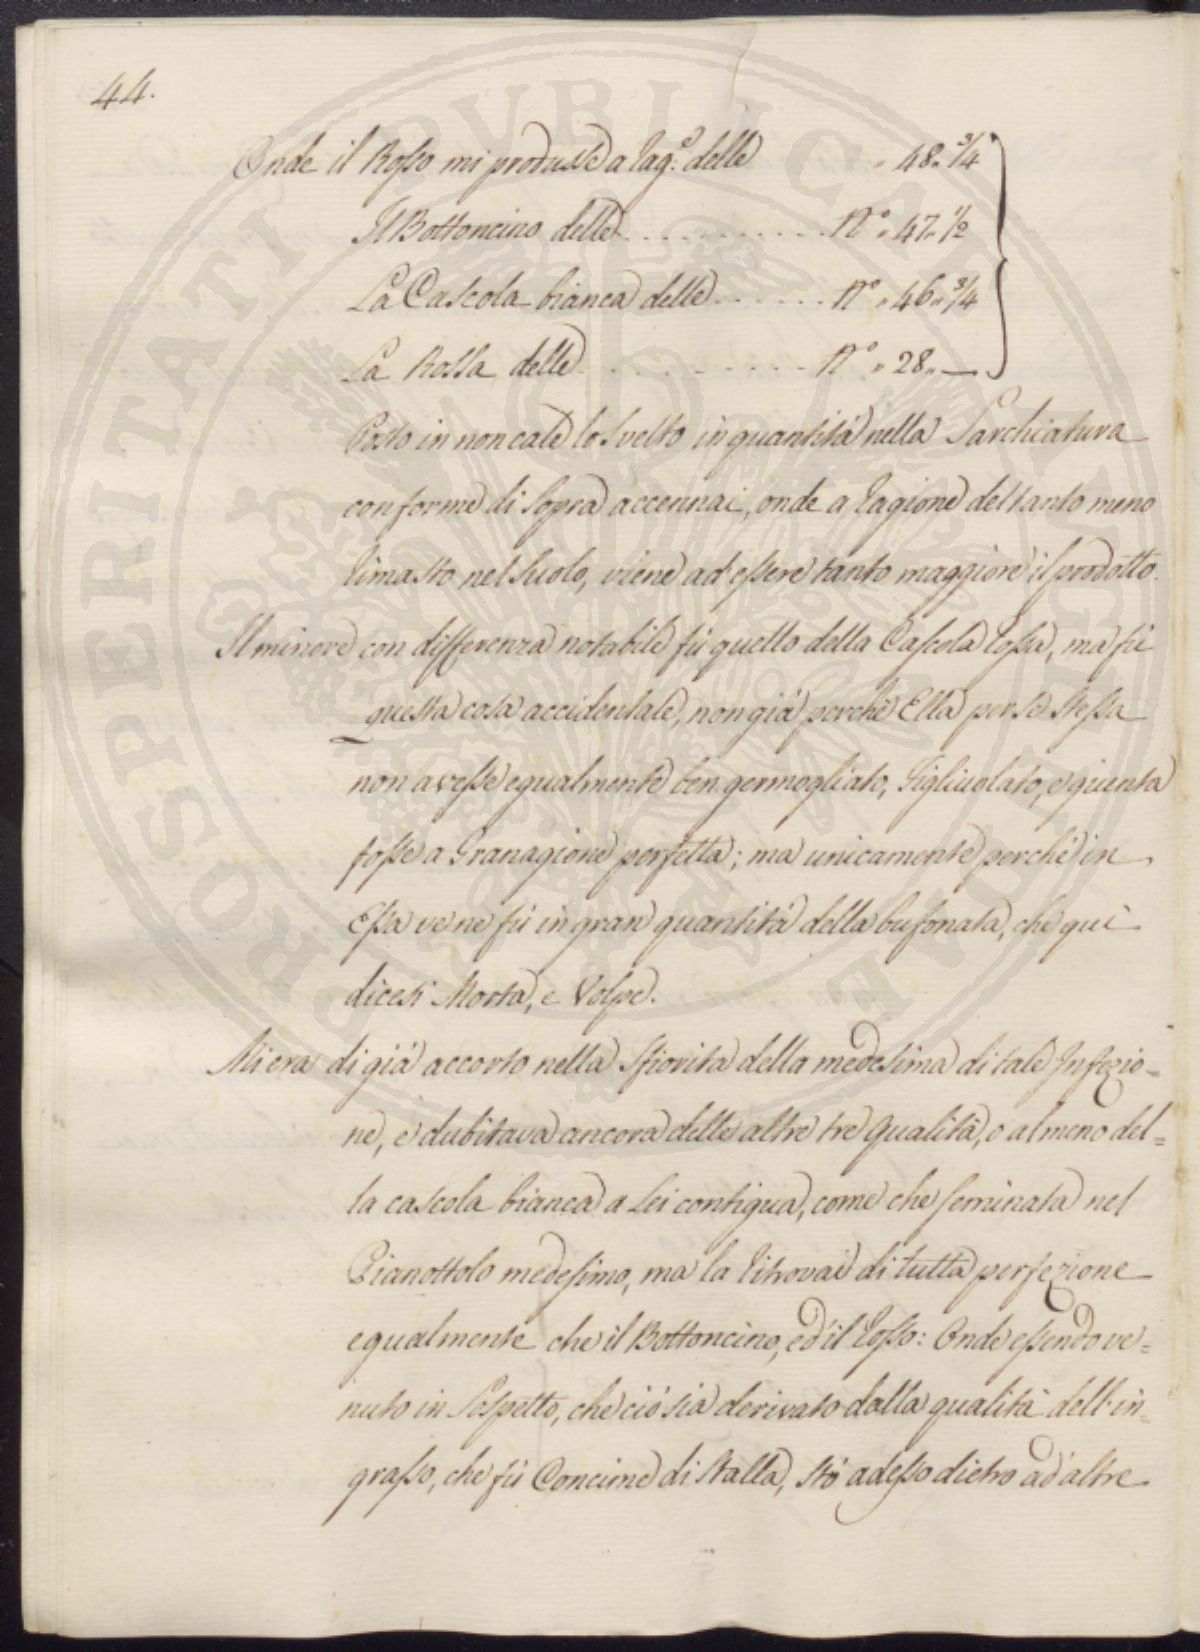 44.
Onde il Rosso mi produsse a rag.e delle „ 48„ 3/4
Il Bottoncino delle . . . . . . . . . . . . N° „ 47„ 1/2
La Cascola bianca delle . . . . . . N° „ 46„ 3/4
La Rossa delle . . . . . . . . . . . . N° „ 28„ —
Posto in non cale lo svelto in quantità nella Sarchiatura
conforme di sopra accennai, onde a ragione del tanto meno
rimasto nel suolo, viene ad essere tanto maggiore il prodotto.
Il minore con differenza notabile fù quello della Cascola rossa, ma fù
questa cosa accidentale, non già perchè Ella per se stessa
non avesse egualmente ben germogliato, figliuolato, e giunta
fosse a Granagione perfetta; ma unicamente perchè in
Essa ve ne fù in gran quantità della bufonata, che quì
dicesi Morta, e Volpe.
Mi era di già accorto nella sfiorita della medesima di tale Infezio-
ne, e dubitava ancora delle altre tre qualità, o almeno del=
la cascola bianca a Lei contigua, come che seminata nel
Pianottolo medesimo, ma la ritrovai di tutta perfezione
egualmente che il Bottoncino, ed il rosso: Onde essendo ve=
nuto in sospetto, che ciò sia derivato dalla qualità dell'in=
grasso, che fù Concime di stalla, stò adesso dietro ad altre
PROSPERITATI PUBLICAE